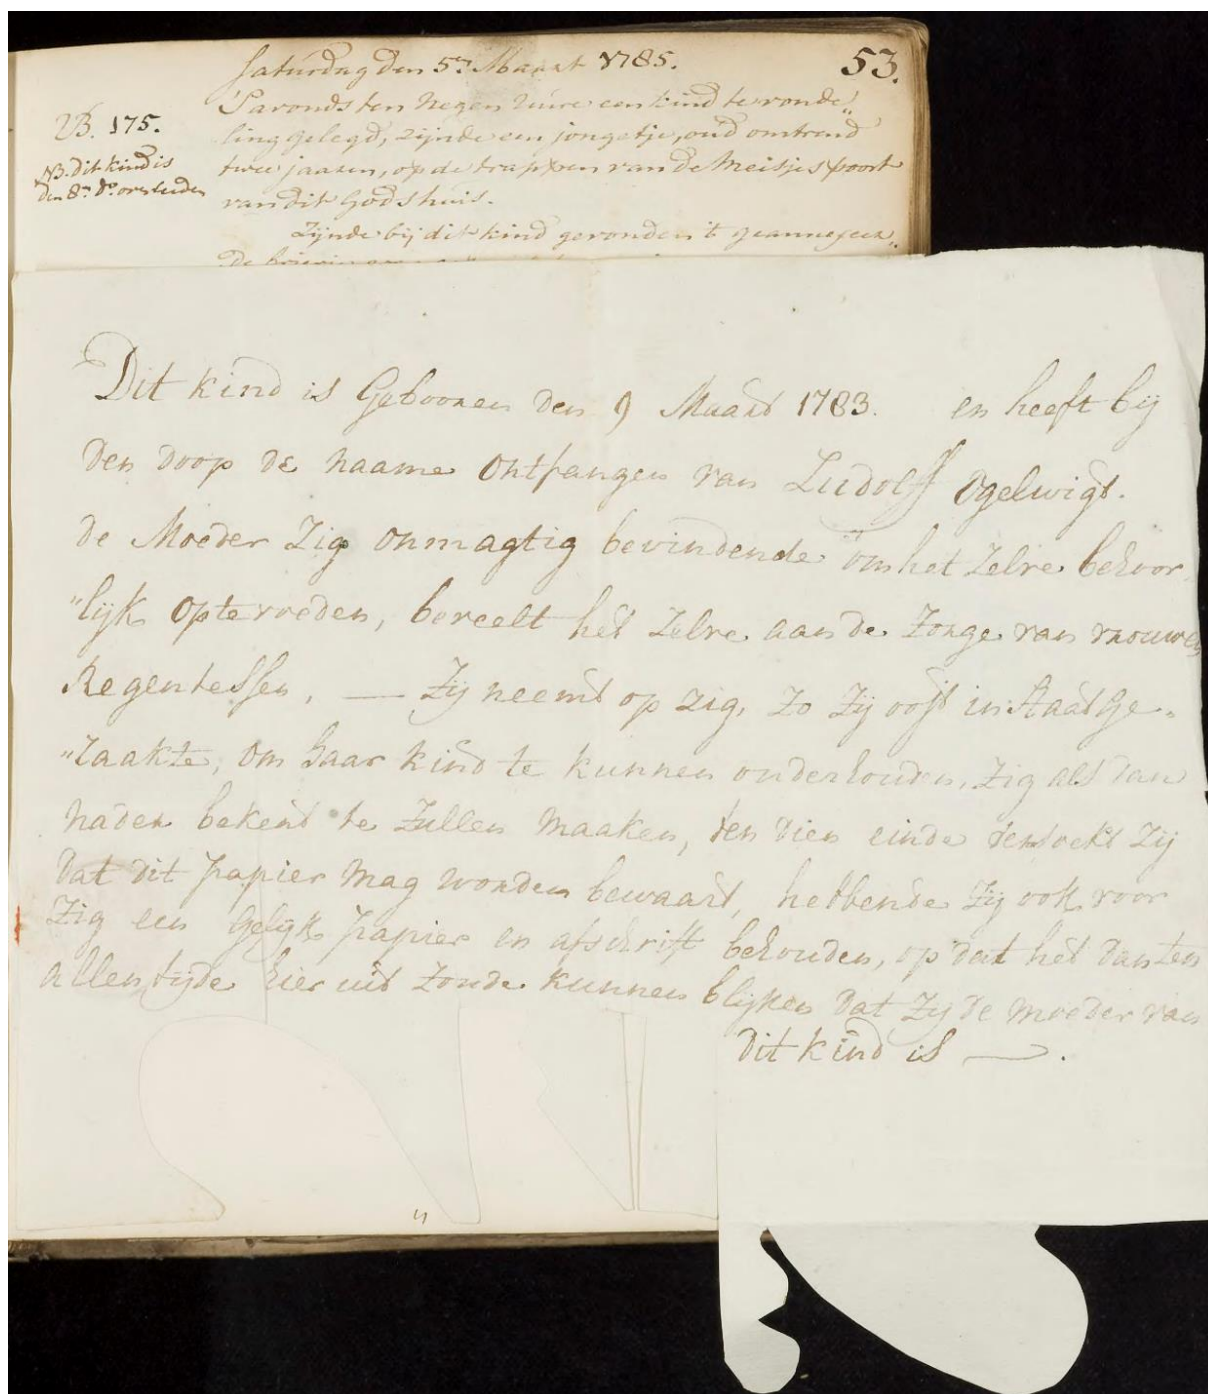 53.
Saturdag den 5en Maart 1785.
'S avonds ten Negen uure een kind te vonde„
ling gelegd, zijnde een jongetje, oud omtrend
twee jaaren, op de trappen van de Meisjes poort
van dit Godshuis.
Zijnde bij dit kind gevonden 't geannexeer„
de
175.
NB. dit kind is
den 8en do. overleeden
Dit kind is Gebooren den 9 Maard 1783. en heeft bij
den doop de naame ontfangen van Ludolff
de Moeder Zig onmagtig bevindende om het Zelve behoor„
"lijk opte voeden, beveelt het Zelve aan de Zorge van vrouwen
Regentessen, — Zij neemd op zig, Zo Zij ooyt in Staad Ge„
"raakte, om haar kind te kunnen onderhouden, Zig als dan
nader bekend te Zullen maaken, ten dien einde versoekt Zij
dat dit papier mag worden bewaard, hebbende Zij ook voor
Zig een Gelijk papier en afschrift behouden, op dat het dan ten
allen tijde hier uit Zoude kunnen blijken dat Zij de moeder van
dit kind is —.